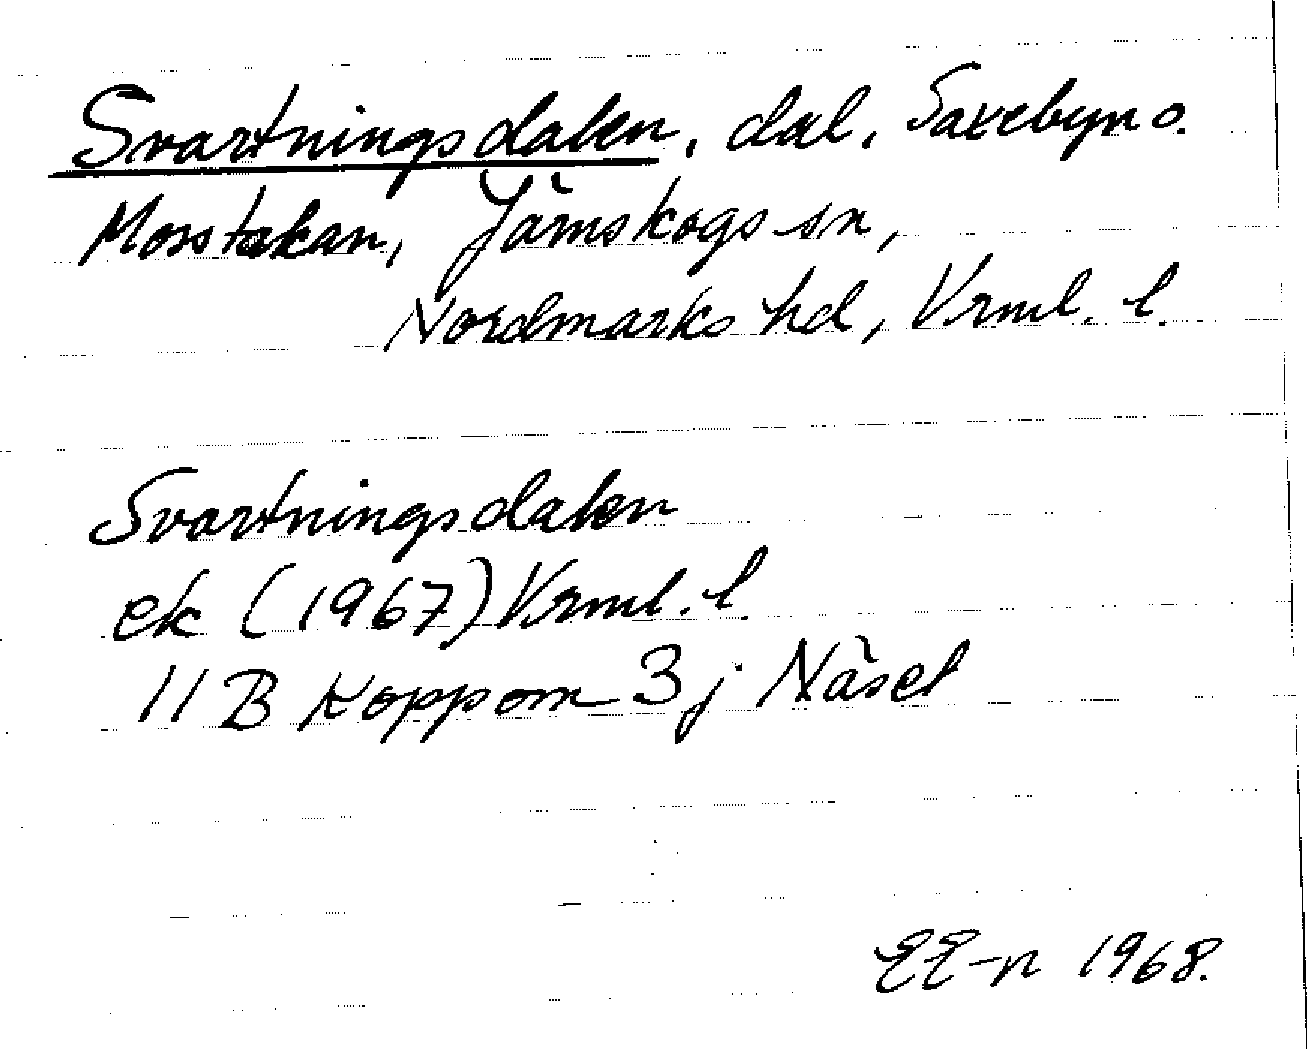 Svartningsdalen, dal, Saxebyn o.
Mosstakan, Järnskogs sn,
Nordmarks hd, Vrml. l.
Svartningsdalen
ek (1967) Vrml. l.
11 B Koppom 3 j Näset
EE-n 1968.